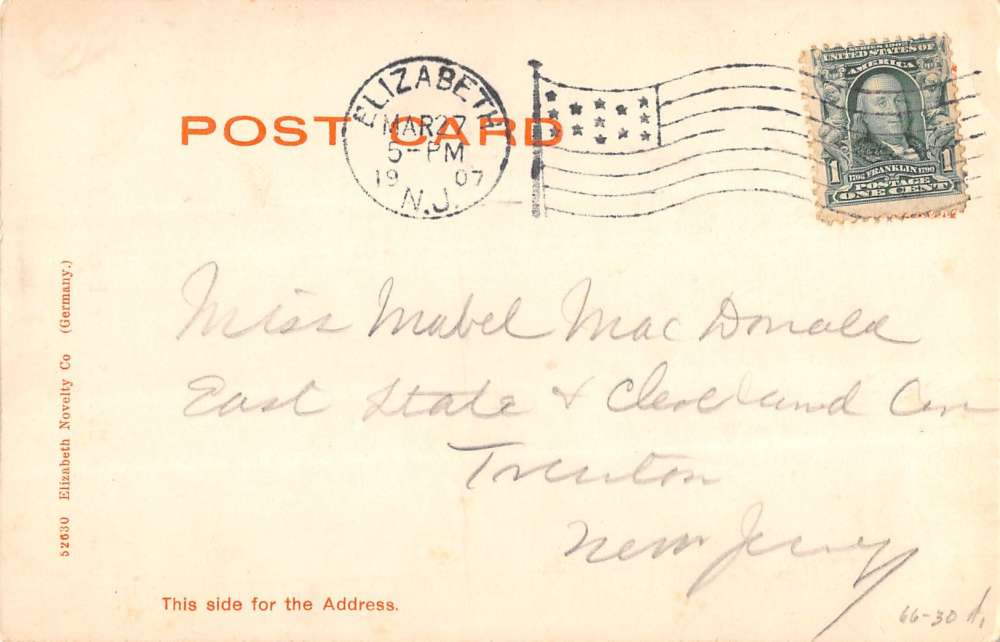 POST CARD
ELIZABETH
MAR 27
5-PM
1907
N.J.
SERIES 1902
UNITED STATES OF
AMERICA
1706 FRANKLIN 1790
1 POSTAGE 1
ONE CENT
Miss Mabel Mac Donald
East State & Cleveland
Trenton
New Jersey
52630 Elizabeth Novelty Co (Germany.)
This side for the Address.
66-30